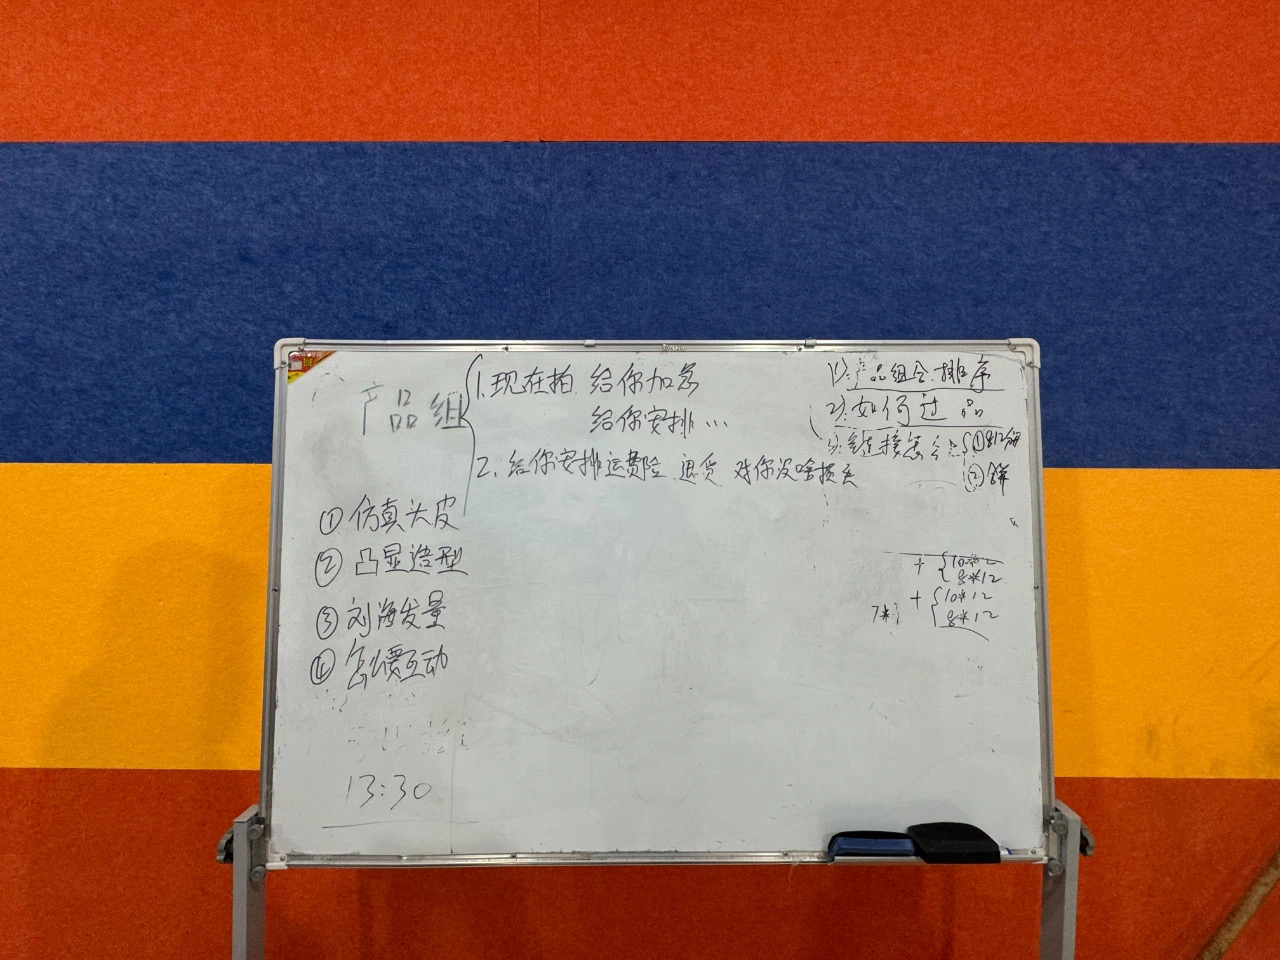 产品组
1.现在拍.给你加急
给你安排…
2.给你安排运费险.退货 对你没啥损失
①仿真头皮
②凸显造型
③刘海发量
④怎么要互动
13:30
1).产品组合.排序
2).如何过品
3).链接怎么
①
②
+ 10*12
8*12
+ 10*12
8*12
7*